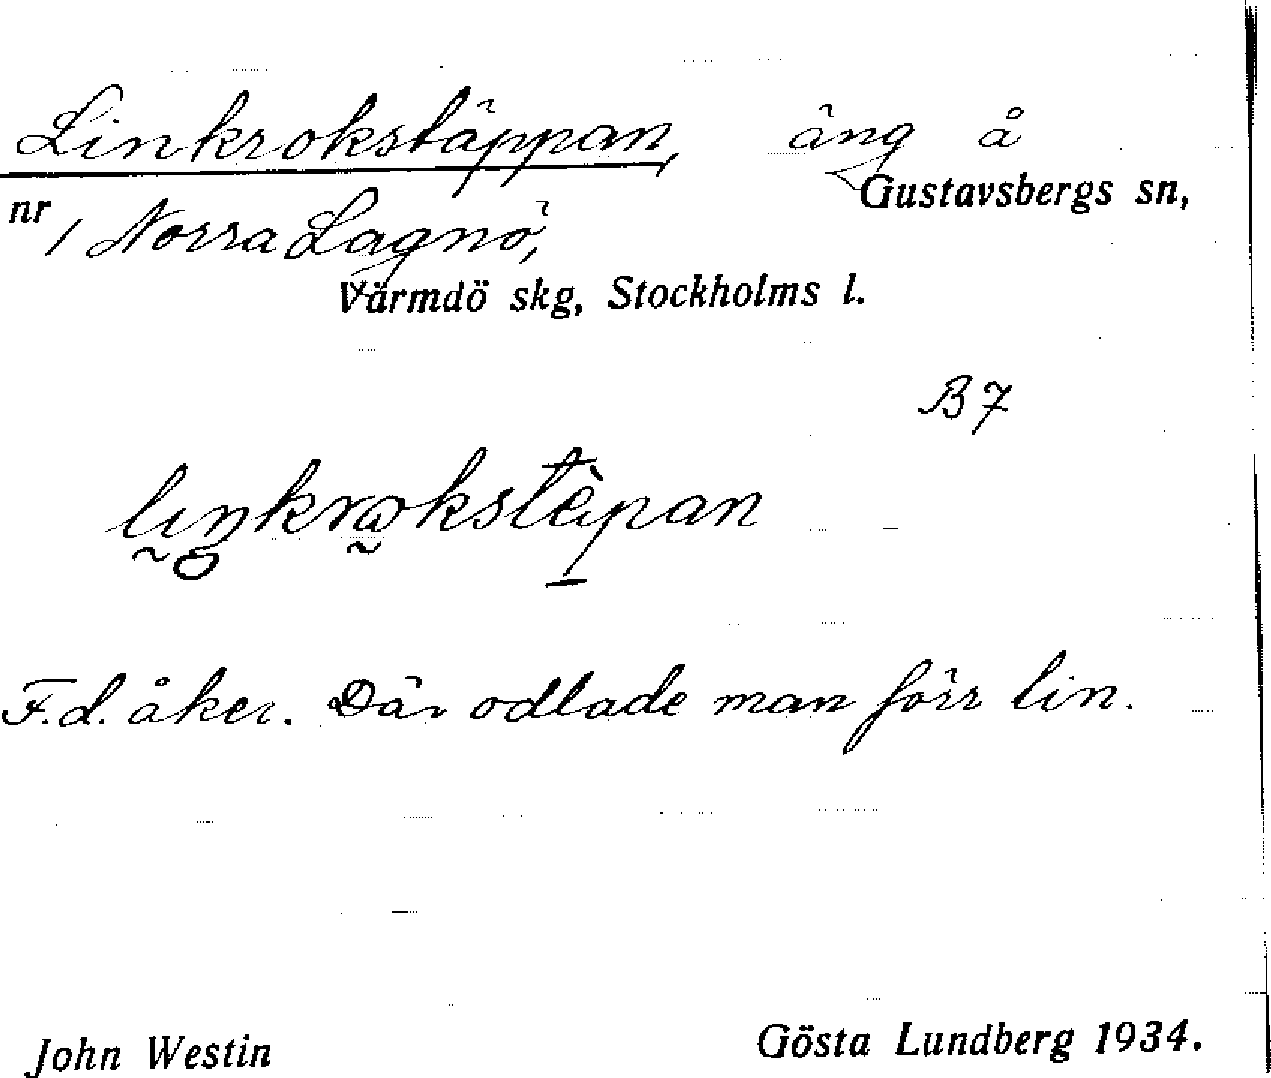 Linkrokstäppan, äng å
Gustavsbergs sn,
nr 1 Norra Lagnö,
Värmdö skg, Stockholms l.
B 7
F.d. åker. Där odlade man förr lin.
John Westin Gösta Lundberg 1934.